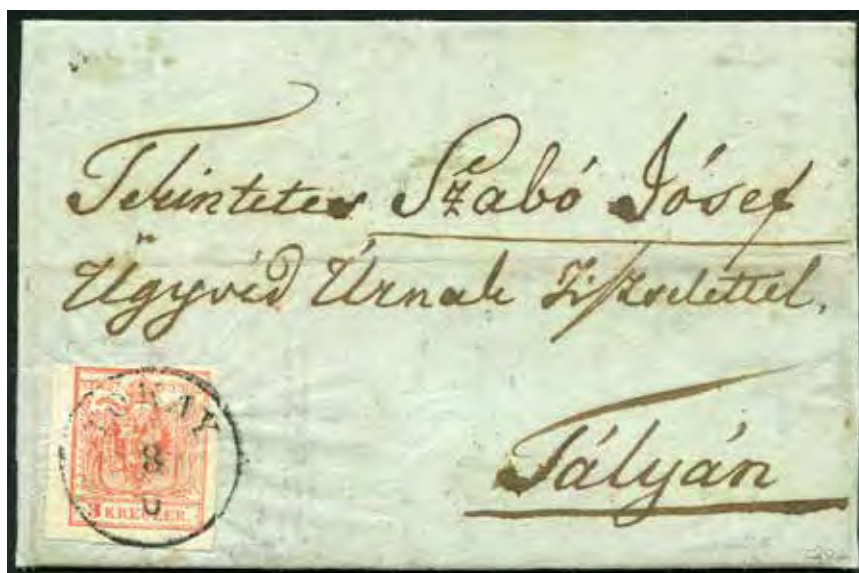 Tekintetes Szabó Jósef
Ügyvéd Úrnak Tisztelettel.
Tályán
TOKAY
8
3 KREUZER.